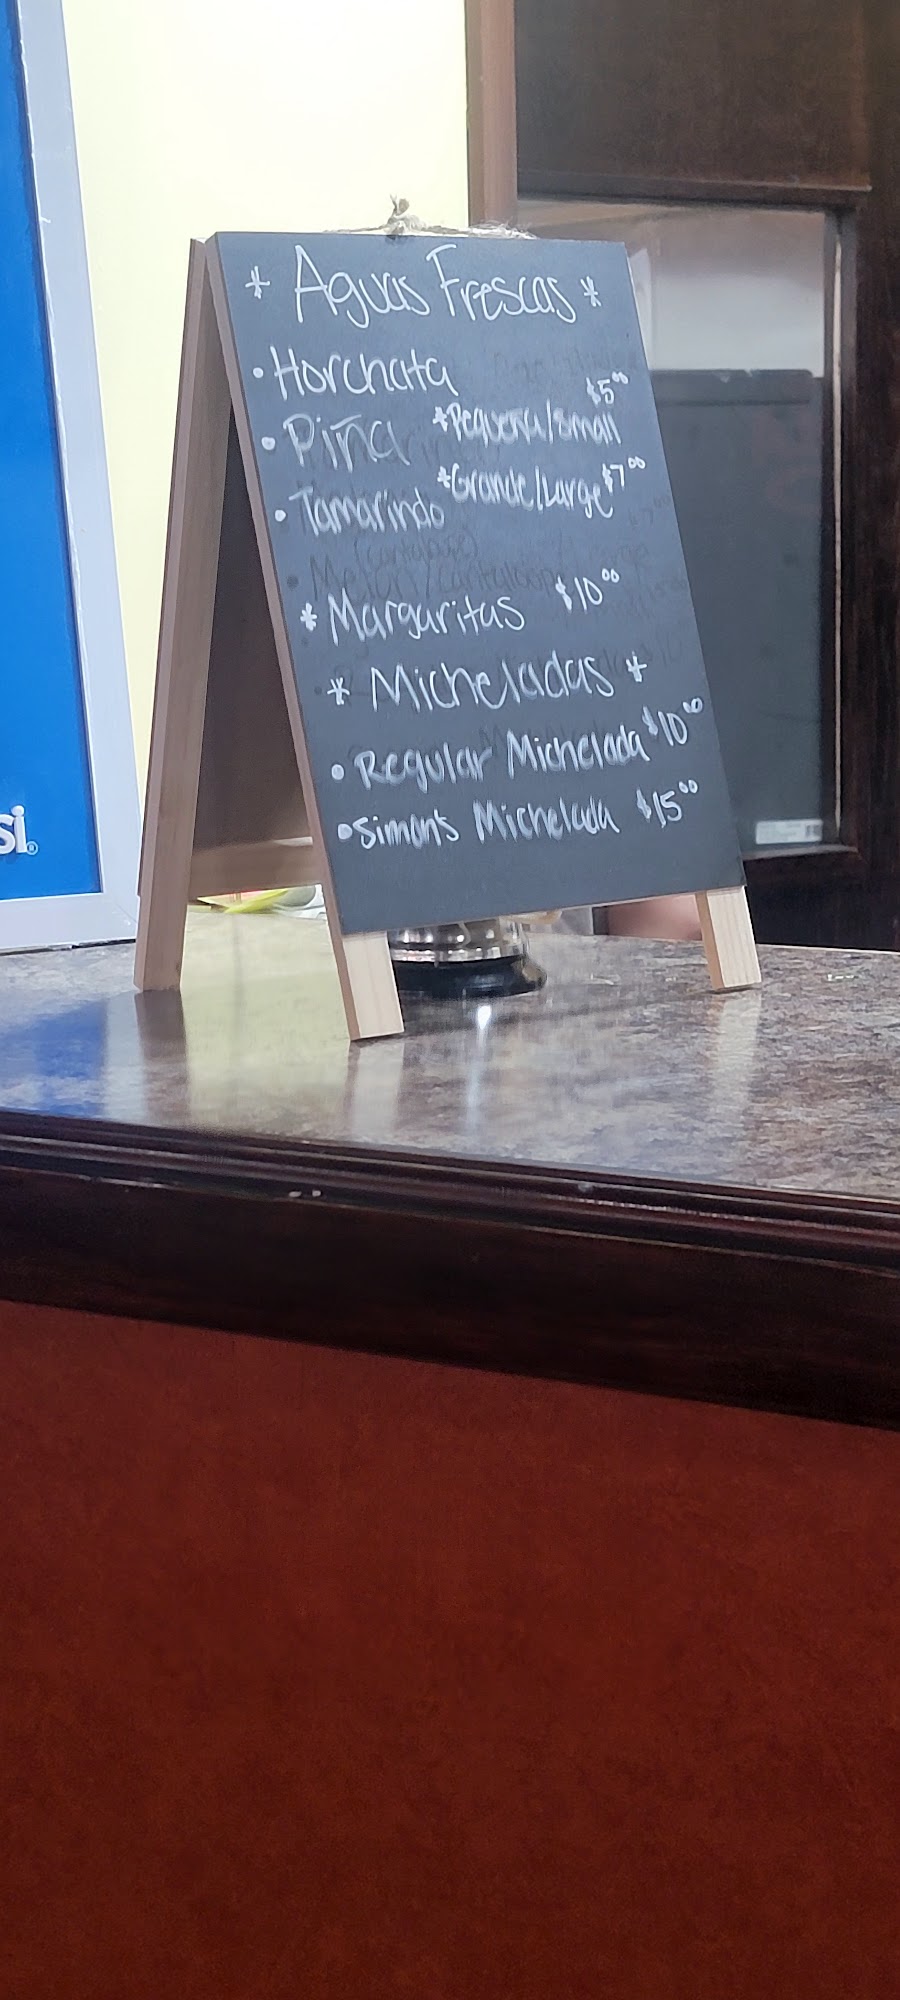 * Aguas Frescas *
• Horchata
$5.00
• Piña *Pequeña/small
• Tamarindo *Grande/Large $7.00
(cantaloupe)
• Melon/cantaloupe
* Margaritas $10.00
* Micheladas *
• Regular Michelada $10.00
• Simon's Michelada $15.00
si®